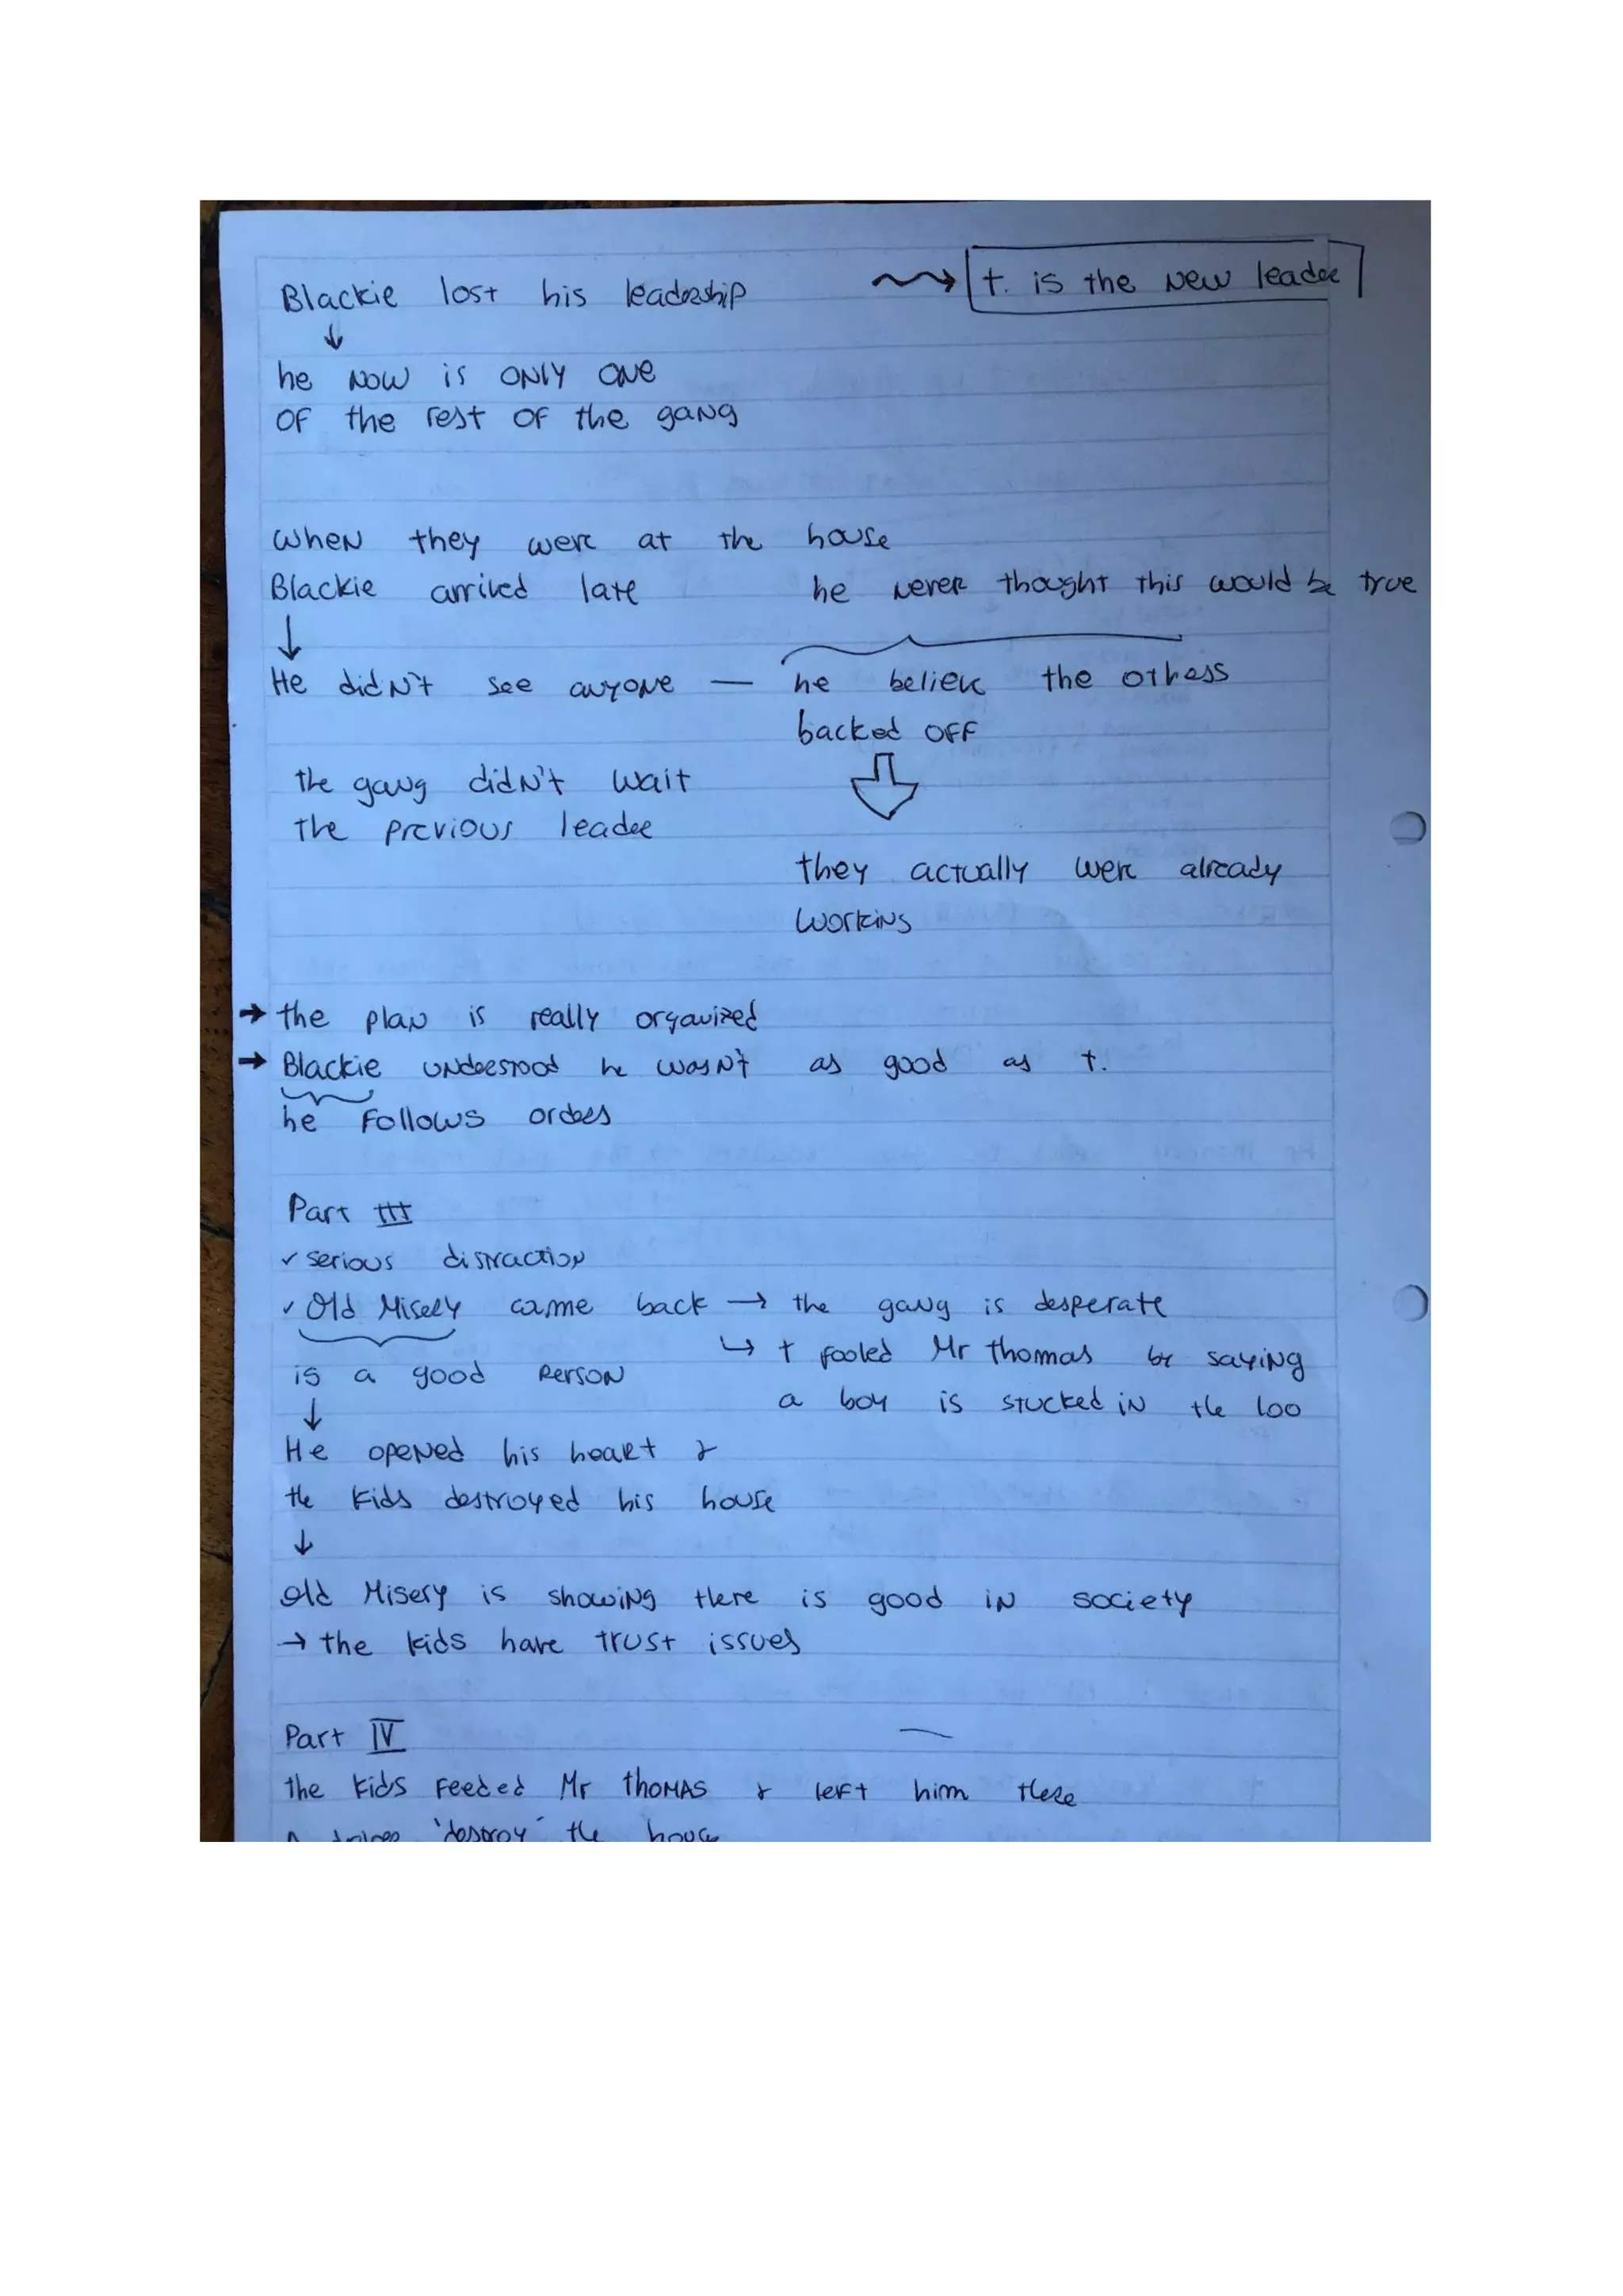 Blackie lost his leadership ⟿ t. is the new leader
↓
he now is only one
of the rest of the gang
When they were at the house
Blackie arrived late he never thought this would be true
↓
He didn't see anyone — he believe the others
backed off
the gang didn't wait
the previous leader
they actually were already
working
→ the plan is really organized
→ Blackie understood he wasn't as good as t.
he follows orders
Part III
✓ serious distraction
✓ Old Misery came back → the gang is desperate
↳ t fooled Mr thomas by saying
is a good person
a boy is stucked in the loo
↓
He opened his heart &
the kids destroyed his house
↓
Old Misery is showing there is good in society
→ the kids have trust issues
Part IV
the kids feeded Mr thomas & left him there
'destroy' the house